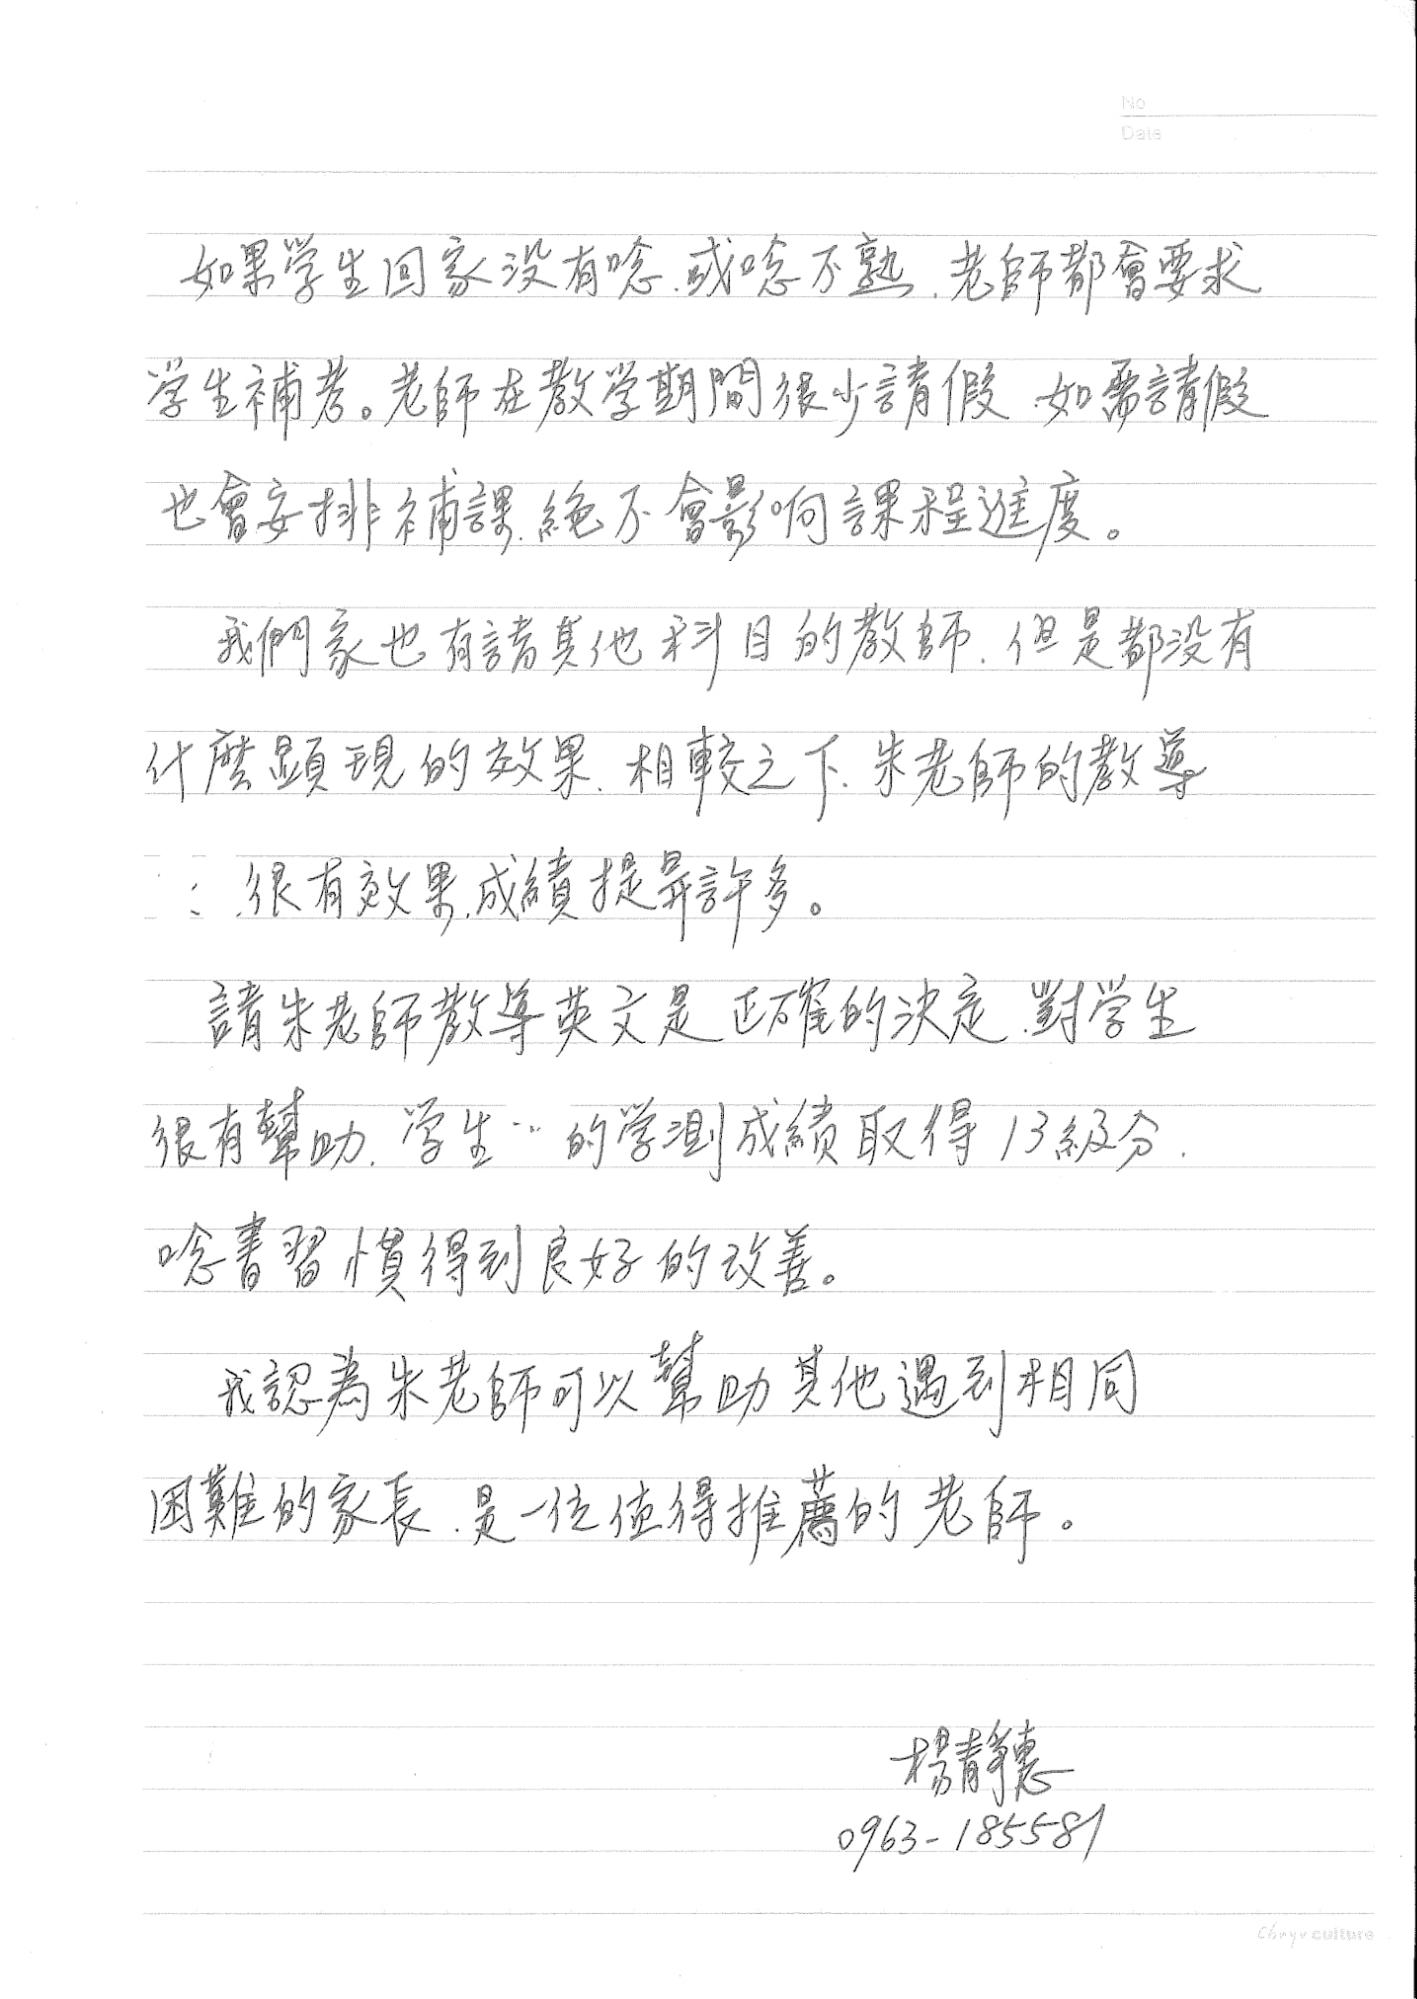 No
Date
如果学生回家没有唸.或唸不熟.老師都會要求
学生補考。老師在教学期間很少請假.如需請假
也會安排補課.絕不會影响課程進度。
我們家也有請其他科目的教師.但是都没有
什麼顕現的效果.相較之下.朱老師的教導
很有效果.成績提昇許多。
請朱老師教導英文是正確的決定.對学生
很有幫助.学生 的学測成績取得13級分.
唸書習慣得到良好的改善。
我認為朱老師可以幫助其他遇到相同
困難的家長.是一位值得推薦的老師。
楊靜惠
0963-185581
culture